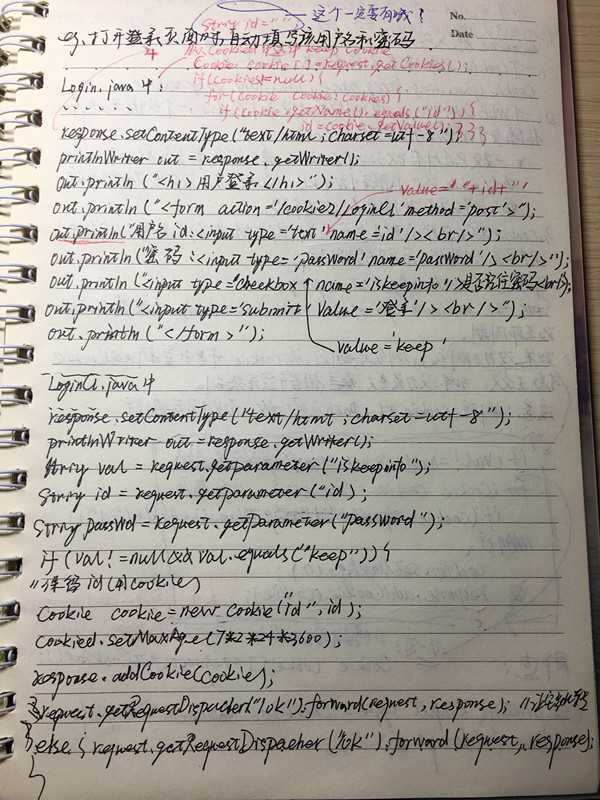 No.
Date
String id=""; 这个一定要有哦!
eg. 打开登录页面时,自动填写该用户名和密码
Cookie cookies[]=request.getCookies();
Login.java中: if(cookies!=null){
for(Cookie cookie: cookies){
if(cookie.getName().equals("id")){
id=cookie.getValue(); }}}
response.setContentType("text/html;charset=utf-8");
printlnWriter out = response.getWriter();
out.println("<h1>用户登录</h1>");
value='"+id+"'
out.println("<form action='/cookie2/LoginCl' method='post'>");
out.println("用户名 id:<input type='text' name='id'/><br/>");
out.println("密码:<input type='password' name='password'/><br/>");
out.println("<input type='checkbox' name='iskeepinfo'/>是否记住密码<br/>");
out.println("<input type='submit' value='登录'/><br/>");
out.println("</form>");
value='keep'
LoginCl.java中
response.setContentType("text/html;charset=utf-8");
printlnWriter out=response.getWriter();
String val = request.getparameter("iskeepinfo");
String id = request.getparameter("id);
String passWd=request.getparameter("password");
if(val!=null&&val.equals("keep")){
//保留id(用cookie)
Cookie cookie=new cookie("id",id);
Cookied.setMaxAge(7*2*24*3600);
response.addCookie(cookie);
}request.getRequestDispatcher("/ok").forward(request,response);
}else{request.getRequestDispacher("/ok").forward(request,response);
}